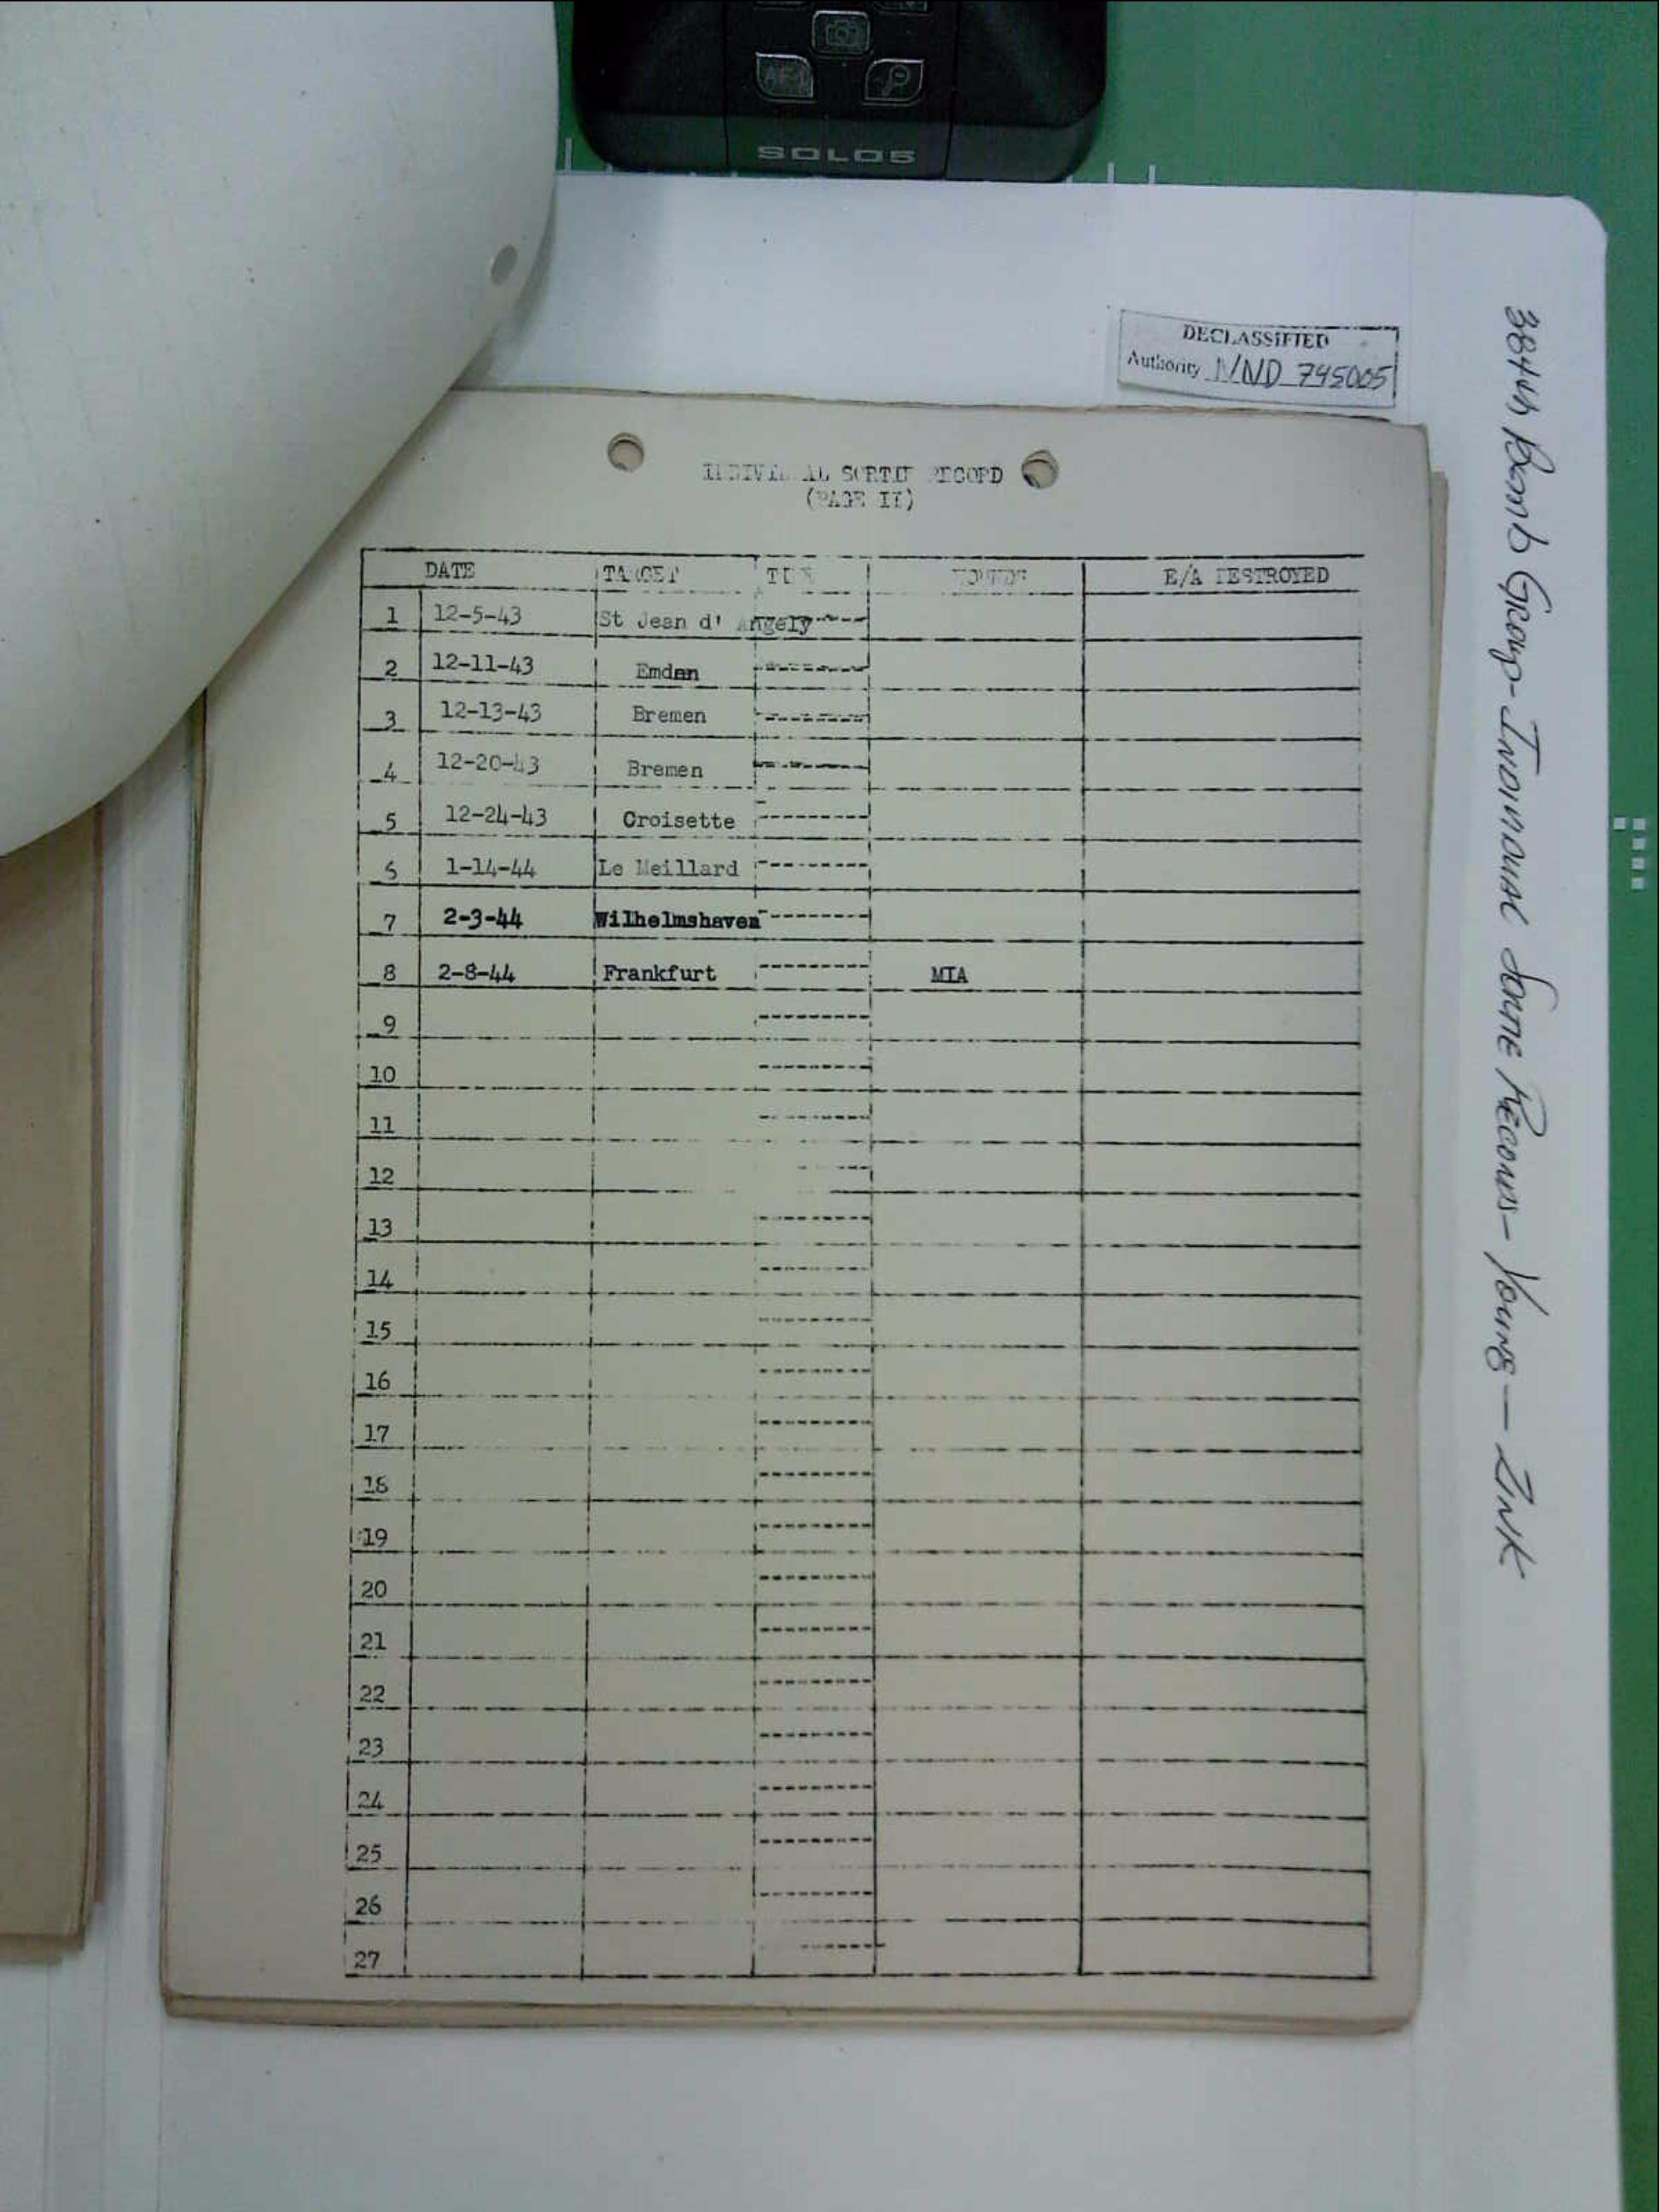 SOLO5
DECLASSIFIED
Authority NND 745005
RECORD
(PAGE II)
DATE TARGET TIME E/A DESTROYED
1 12-5-43 St Jean d' Angely
2 12-11-43 Emden
3 12-13-43 Bremen
4 12-20-43 Bremen
5 12-24-43 Croisette
6 1-14-44 Le Meillard
7 2-3-44 Wilhelmshaven
8 2-8-44 Frankfurt MIA
9
10
11
12
13
14
15
16
17
18
19
20
21
22
23
24
25
26
27
384th Bomb Group - Individual Sortie Records - Young - Zink